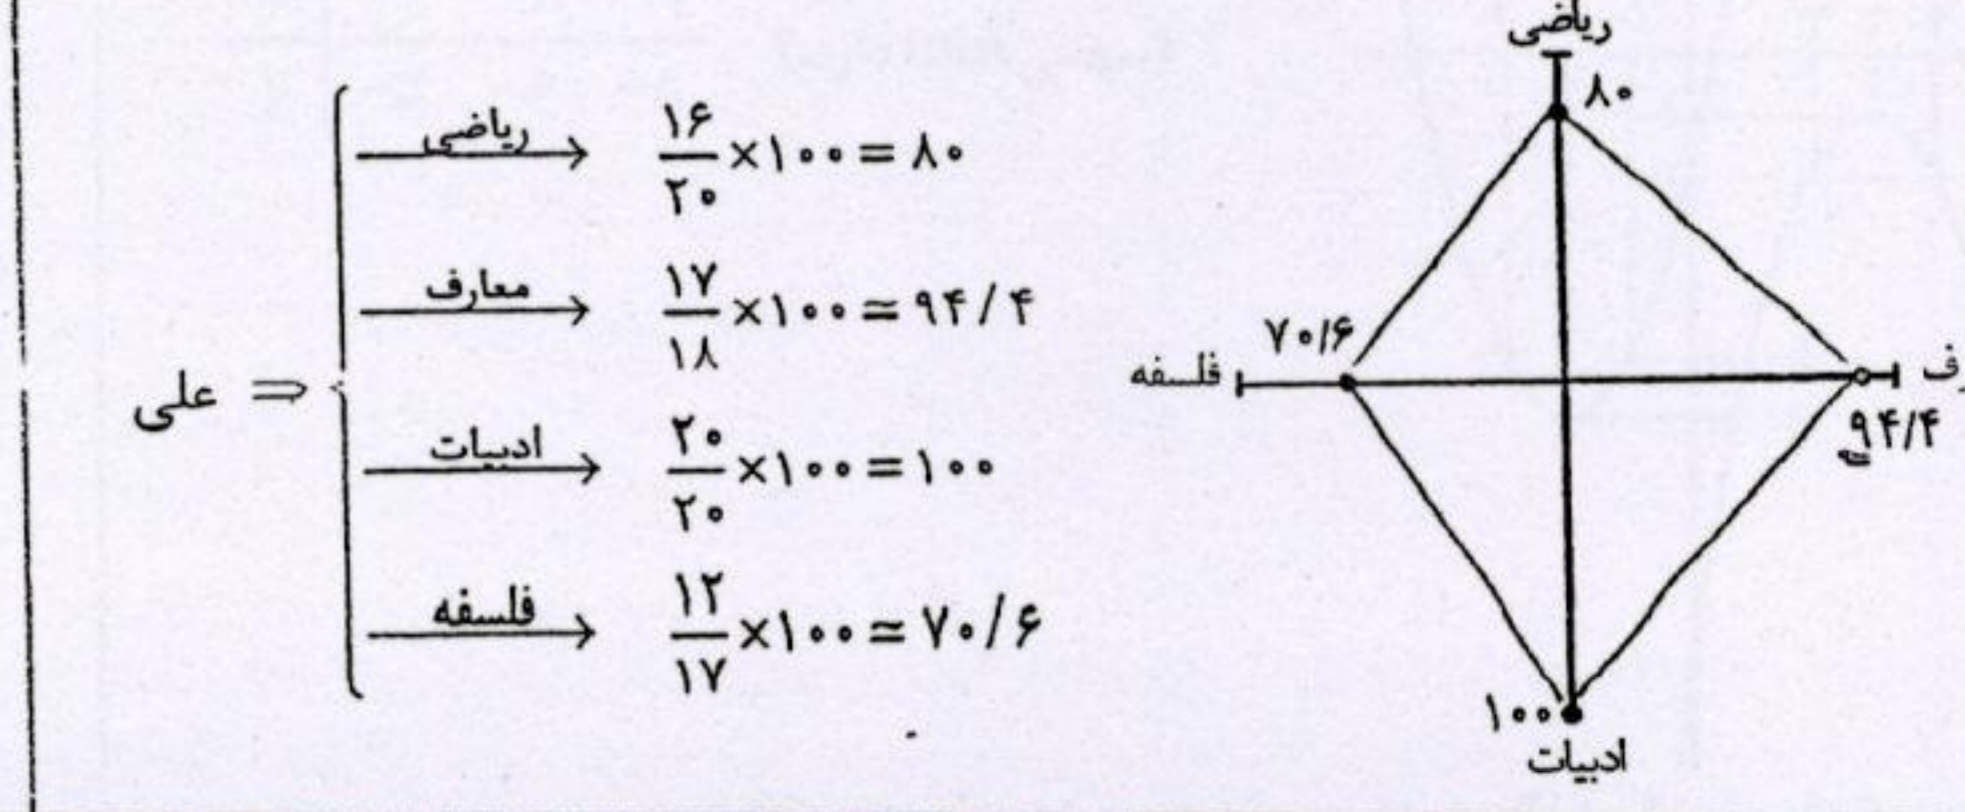 علی ⇐
ریاضی → ۱۶/۲۰ ×۱۰۰ = ۸۰
معارف → ۱۷/۱۸ ×۱۰۰ ≃ ۹۴/۴
ادبیات → ۲۰/۲۰ ×۱۰۰ = ۱۰۰
فلسفه → ۱۲/۱۷ ×۱۰۰ ≃ ۷۰/۶
ریاضی
۸۰
۷۰/۶
فلسفه
رف
۹۴/۴
۱۰۰
ادبیات